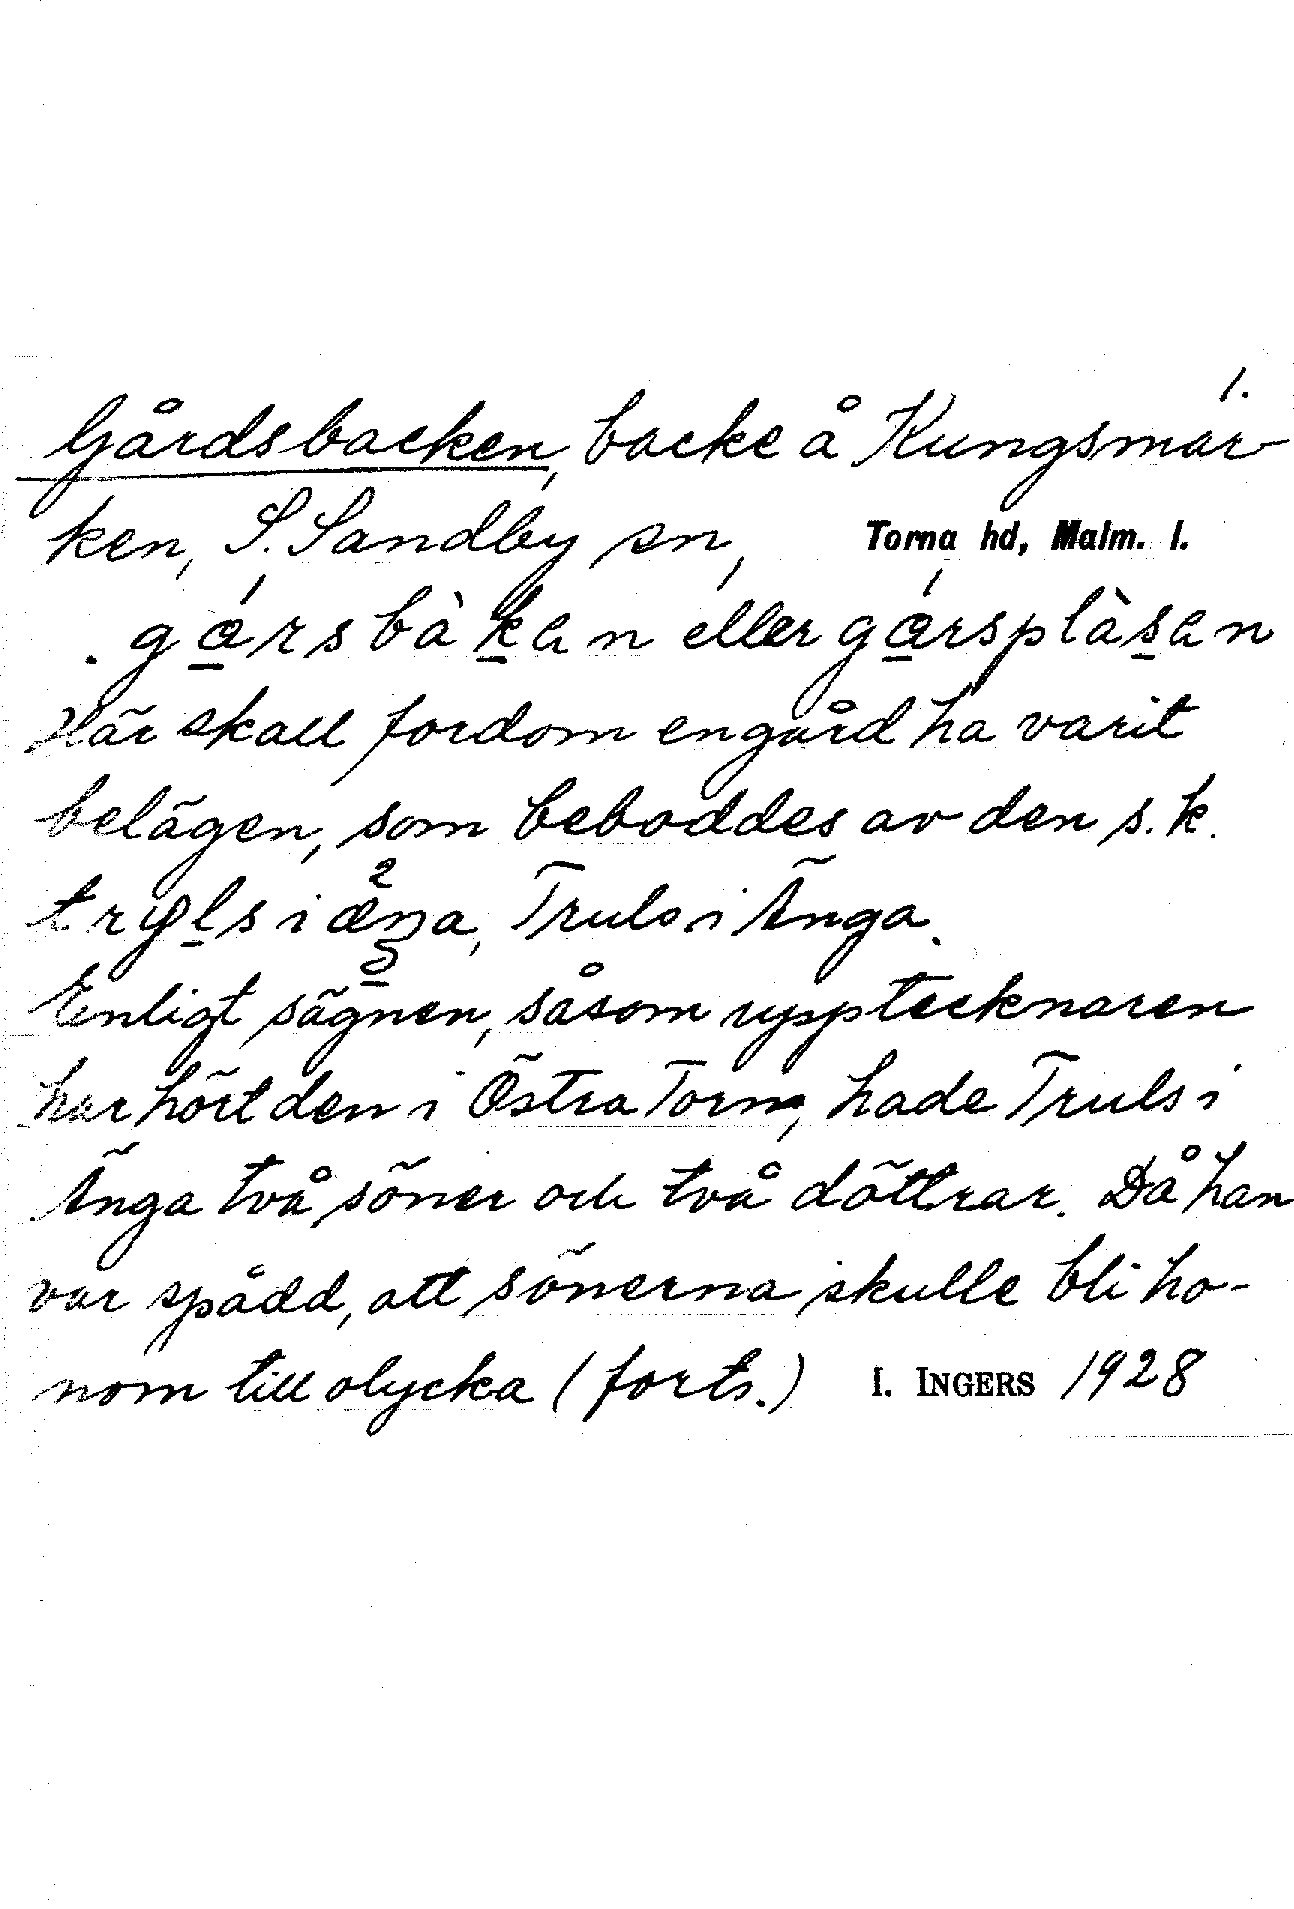 1.
Gårdsbacken, backe å Kungsmar-
ken, S. Sandby sn, Torna hd, Malm. l.
gårsbàkan eller gårsplàsan
Här skall fordom en gård ha varit
belägen, som beboddes av den s.k.
i Truls i Änga.
Enligt sägnen, såsom upptecknaren
har hört den i Östra Torn, hade Truls i
Änga två söner och två döttrar. Då han
var spådd, att sönerna skulle bli ho-
nom till olycka (forts.) I. INGERS 1928